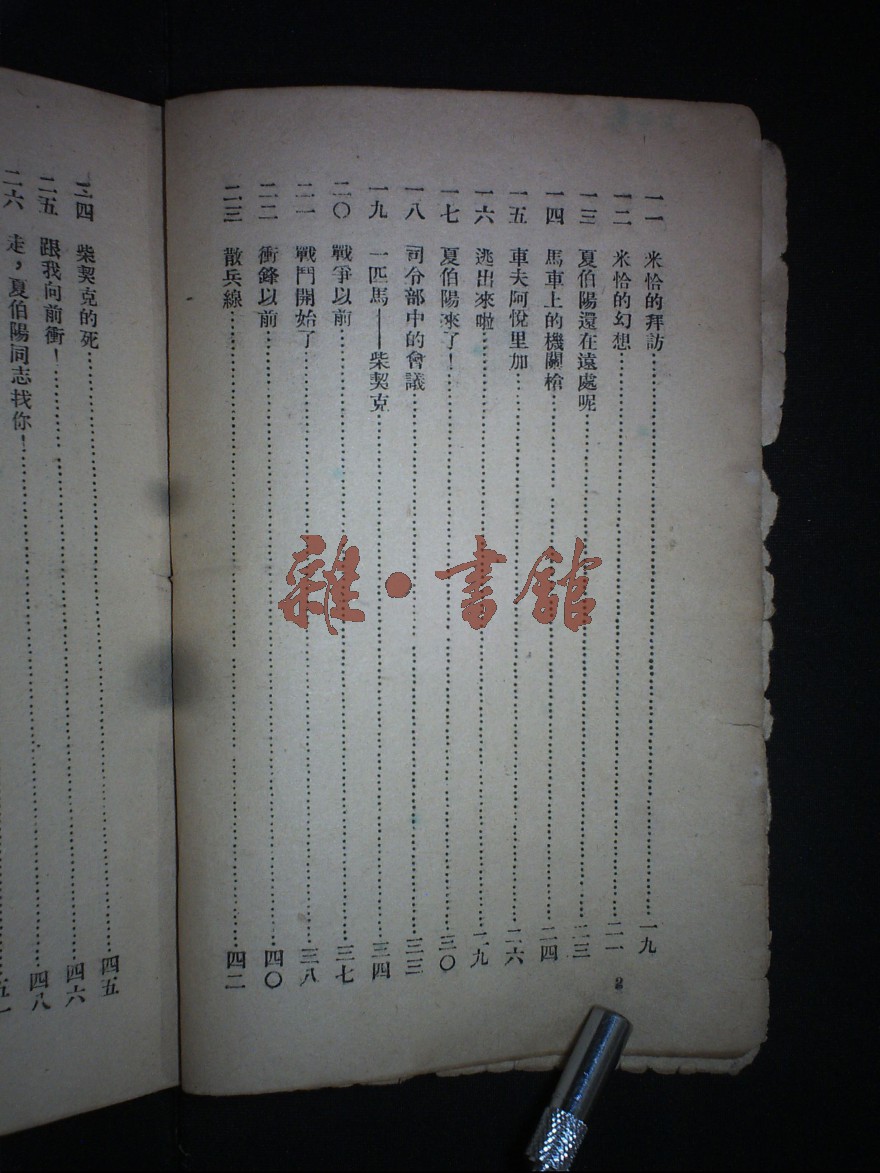 一一 米恰的拜訪……一九
一二 米恰的幻想……二一
一三 夏伯陽還在遠處呢……二三
一四 馬車上的機關槍……二四
一五 車夫阿悅里加……二六
一六 逃出來啦……二九
一七 夏伯陽來了！……三〇
一八 司令部中的會議……三三
一九 一匹馬——柴契克……三四
二〇 戰爭以前……三七
二一 戰鬥開始了……三八
二二 衝鋒以前……四〇
二三 散兵線……四二
2
二四 柴契克的死……四五
二五 跟我向前衝！……四六
二六 走，夏伯陽同志找你！……四八
五一
雜·書館